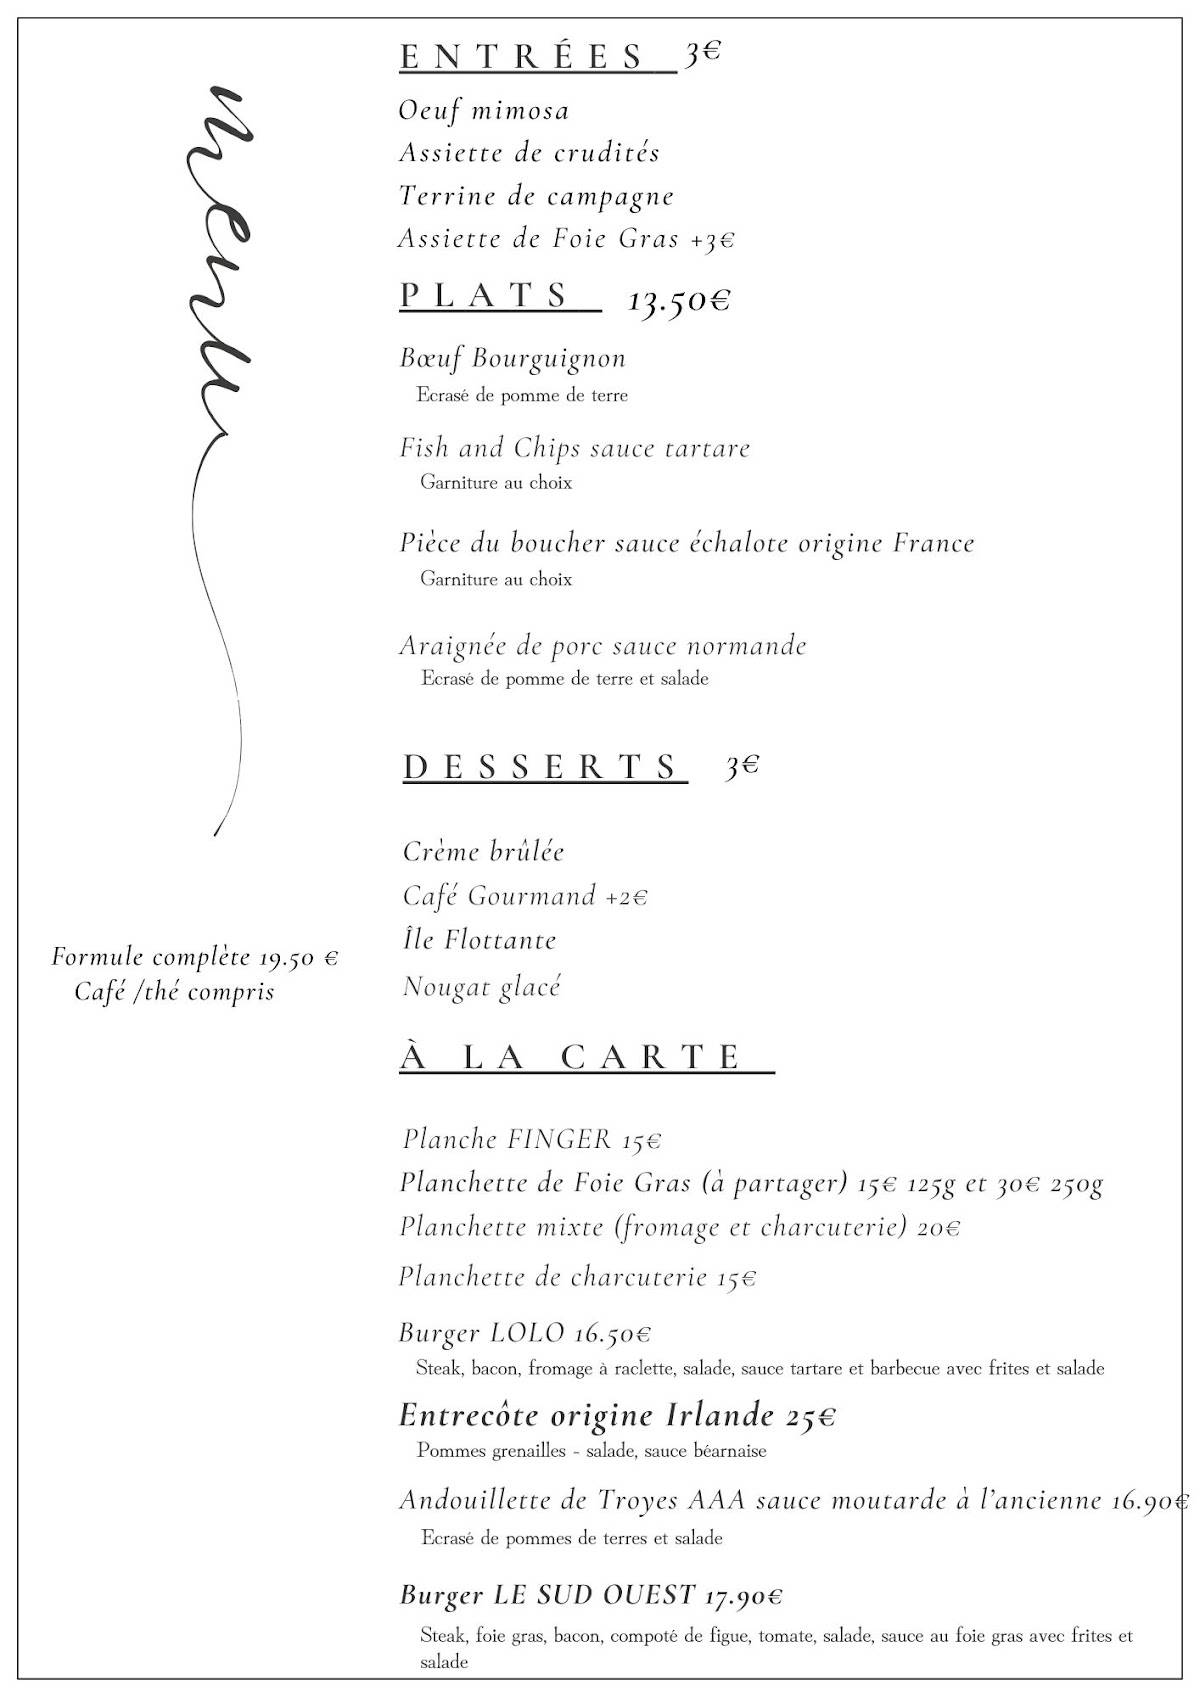 menu
ENTRÉES 3€
Oeuf mimosa
Assiette de crudités
Terrine de campagne
Assiette de Foie Gras +3€
PLATS 13.50€
Bœuf Bourguignon
Ecrasé de pomme de terre
Fish and Chips sauce tartare
Garniture au choix
Pièce du boucher sauce échalote origine France
Garniture au choix
Araignée de porc sauce normande
Ecrasé de pomme de terre et salade
DESSERTS 3€
Crème brûlée
Café Gourmand +2€
Île Flottante
Nougat glacé
Formule complète 19.50 €
Café /thé compris
À LA CARTE
Planche FINGER 15€
Planchette de Foie Gras (à partager) 15€ 125g et 30€ 250g
Planchette mixte (fromage et charcuterie) 20€
Planchette de charcuterie 15€
Burger LOLO 16.50€
Steak, bacon, fromage à raclette, salade, sauce tartare et barbecue avec frites et salade
Entrecôte origine Irlande 25€
Pommes grenailles - salade, sauce béarnaise
Andouillette de Troyes AAA sauce moutarde à l’ancienne 16.90€
Ecrasé de pommes de terres et salade
Burger LE SUD OUEST 17.90€
Steak, foie gras, bacon, compoté de figue, tomate, salade, sauce au foie gras avec frites et
salade